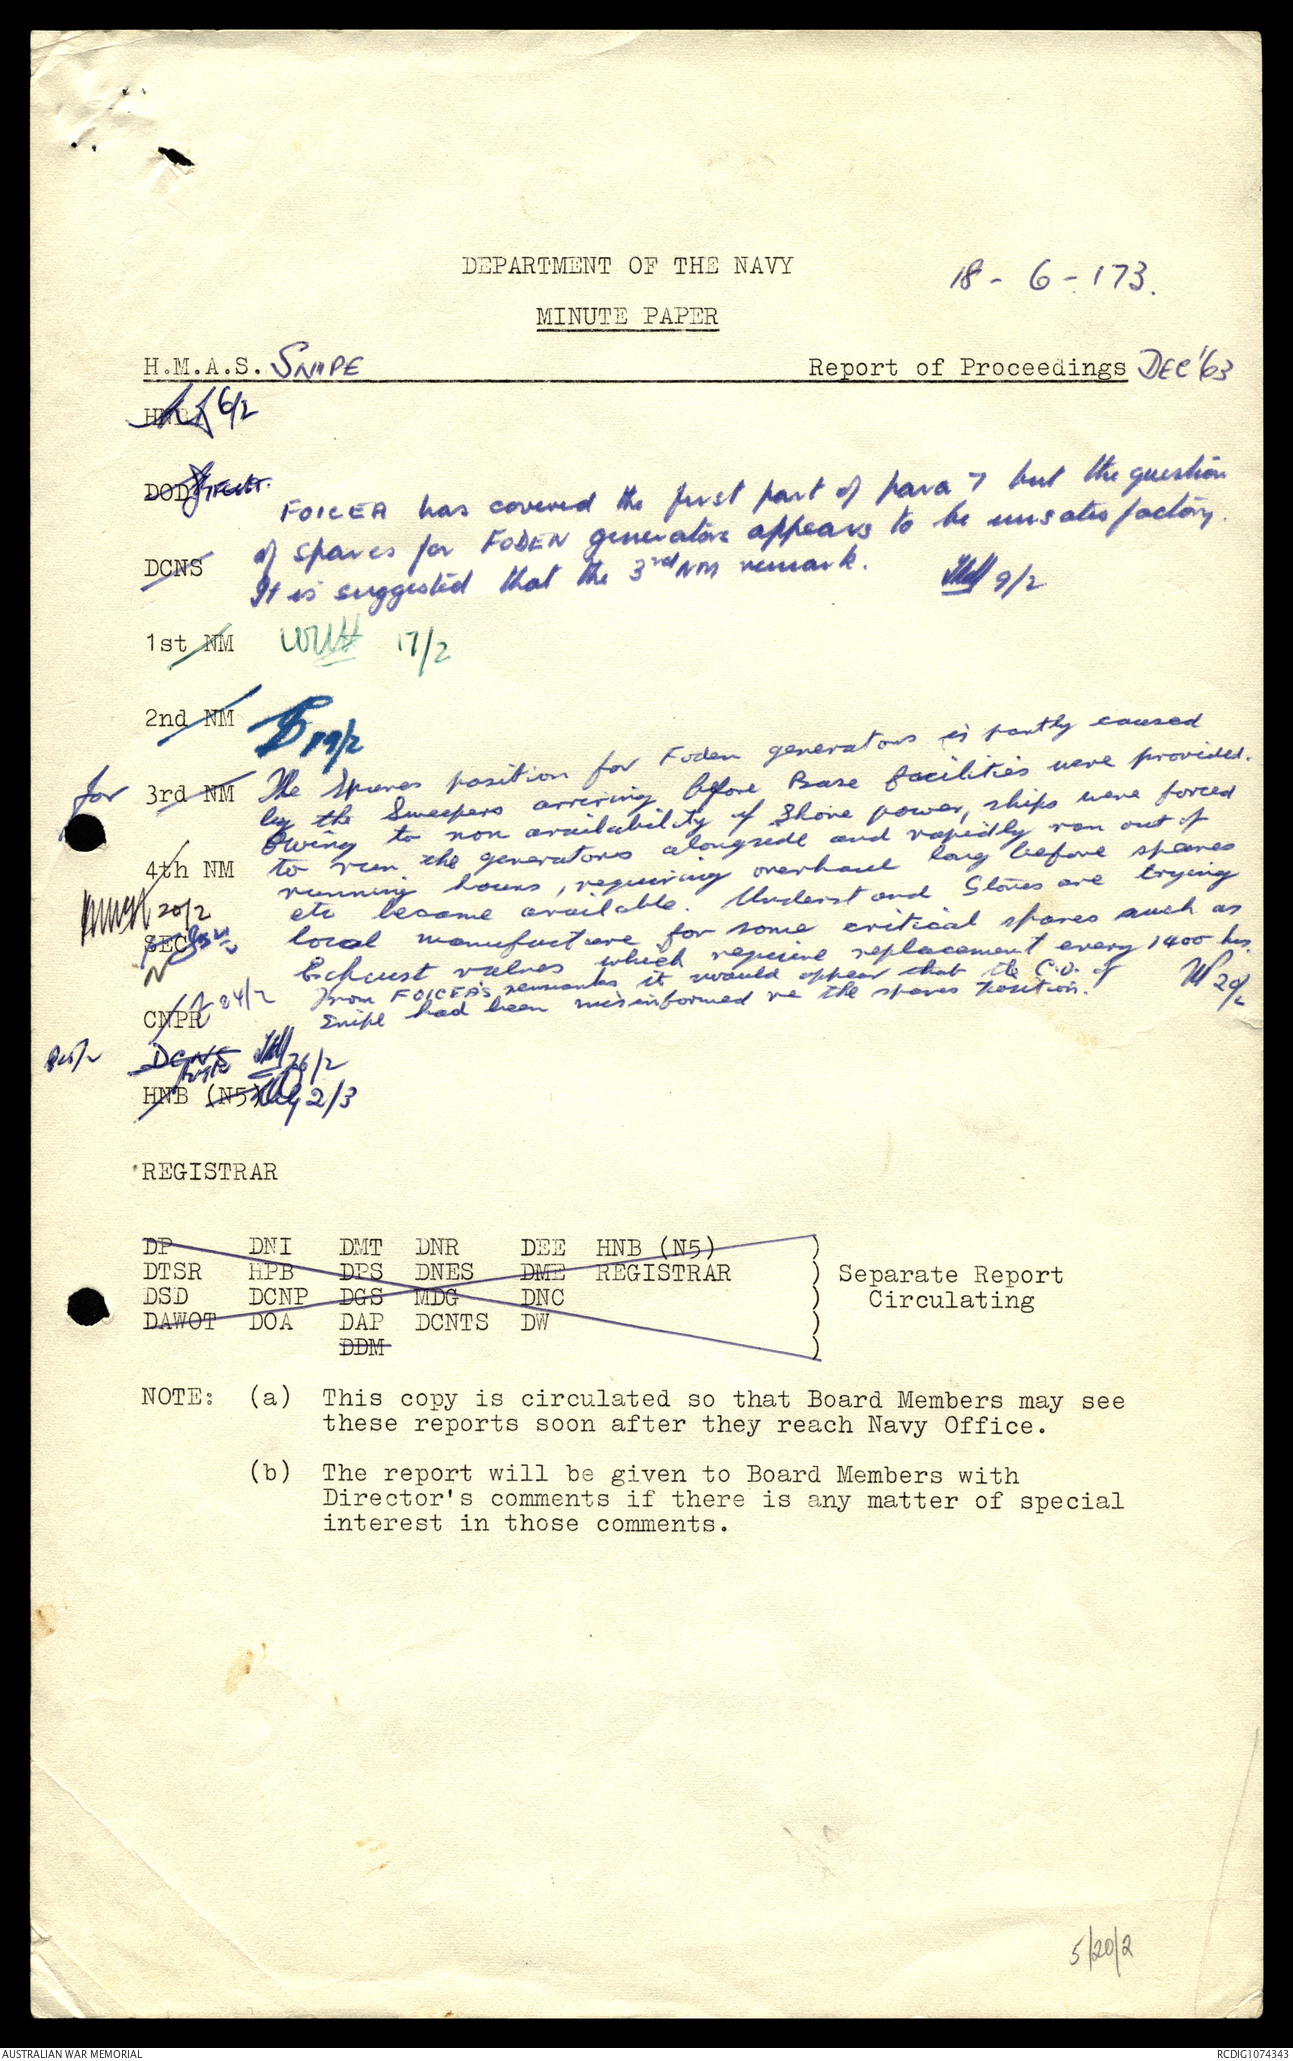 DEPARTMENT OF THE NAVY
18 - 6 - 173.
MINUTE PAPER
H.M.A.S. SNIPE Report of Proceedings DEC '63
HNB 6/2
DOD
FOICEA has covered the first part of para 7 but the question
of spares for FODEN generators appears to be unsatisfactory.
DCNS
It is suggested that the 3rd NM remark. 9/2
1st NM 17/2
2nd NM 19/2
for 3rd NM
The Spares position for Foden generators is partly caused
by the Sweepers arriving before Base facilities were provided.
Owing to non availability of Shore power, ships were forced
to run the generators alongside and rapidly ran out of
4th NM
running hours, requiring overhaul long before spares
etc became available. Understand Stores are trying
20/2
local manufacture for some critical spares such as
SEC
Exhaust valves which require replacement every 1400 hrs.
From FOICEA's remarks it would appear that the C.O. of
Snipe had been misinformed re the spares position. 20/2
CNPR 24/2
DCNS 26/2
HNB (N5) 2/3
REGISTRAR
DP DNI DMT DNR DEE HNB (N5) )
DTSR HPB DPS DNES DME REGISTRAR ) Separate Report
DSD DCNP DGS MDG DNC ) Circulating
DAWOT DOA DAP DCNTS DW )
DDM )
NOTE: (a) This copy is circulated so that Board Members may see
these reports soon after they reach Navy Office.
(b) The report will be given to Board Members with
Director's comments if there is any matter of special
interest in those comments.
5/20/2
AUSTRALIAN WAR MEMORIAL RCDIG1074343